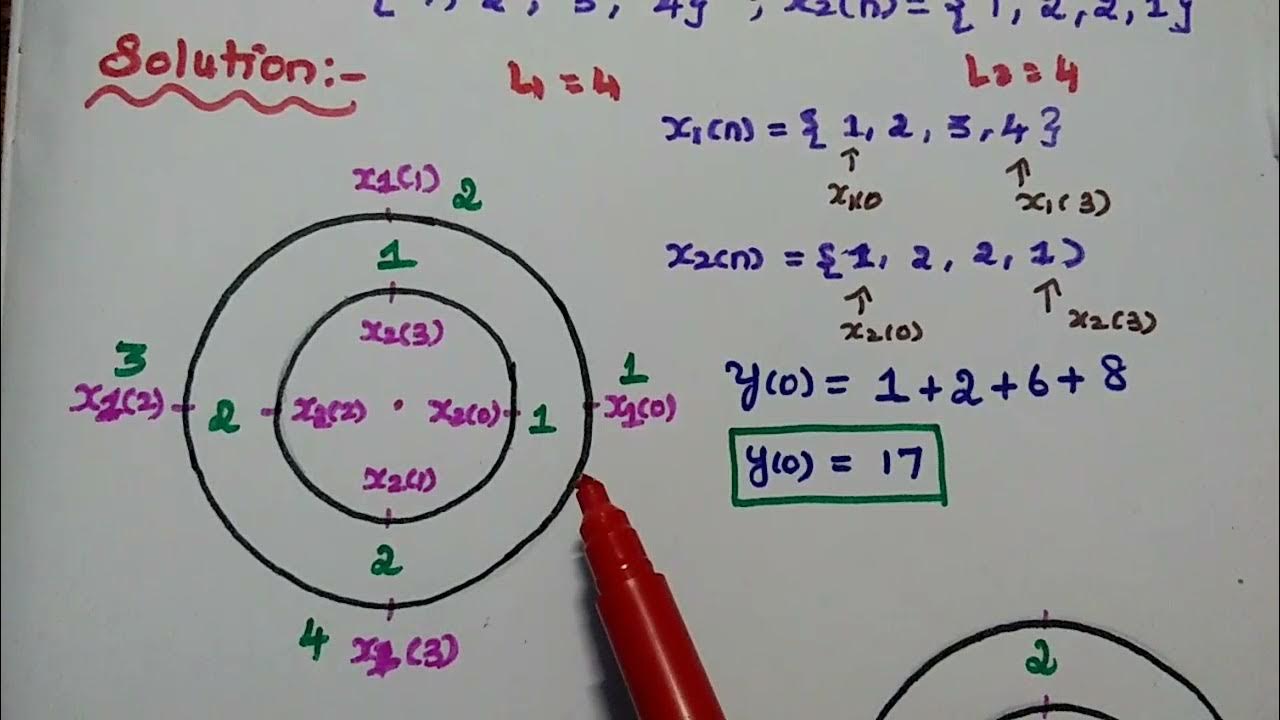 { 1, 2, 3, 4} , x2(n) = {1, 2, 2, 1}
Solution:-
L1 = 4
L2 = 4
x1(n) = { 1, 2, 3, 4 }
↑ ↑
x1(0 x1(3)
x2(n) = {1, 2, 2, 1)
↑ ↑
x2(0) x2(3)
y(0) = 1 + 2 + 6 + 8
y(0) = 17
x1(1) 2
1
x2(3)
3 1
x1(2) 2 x2(2) x2(0) 1 x1(0)
x2(1)
2
4 x1(3)
2